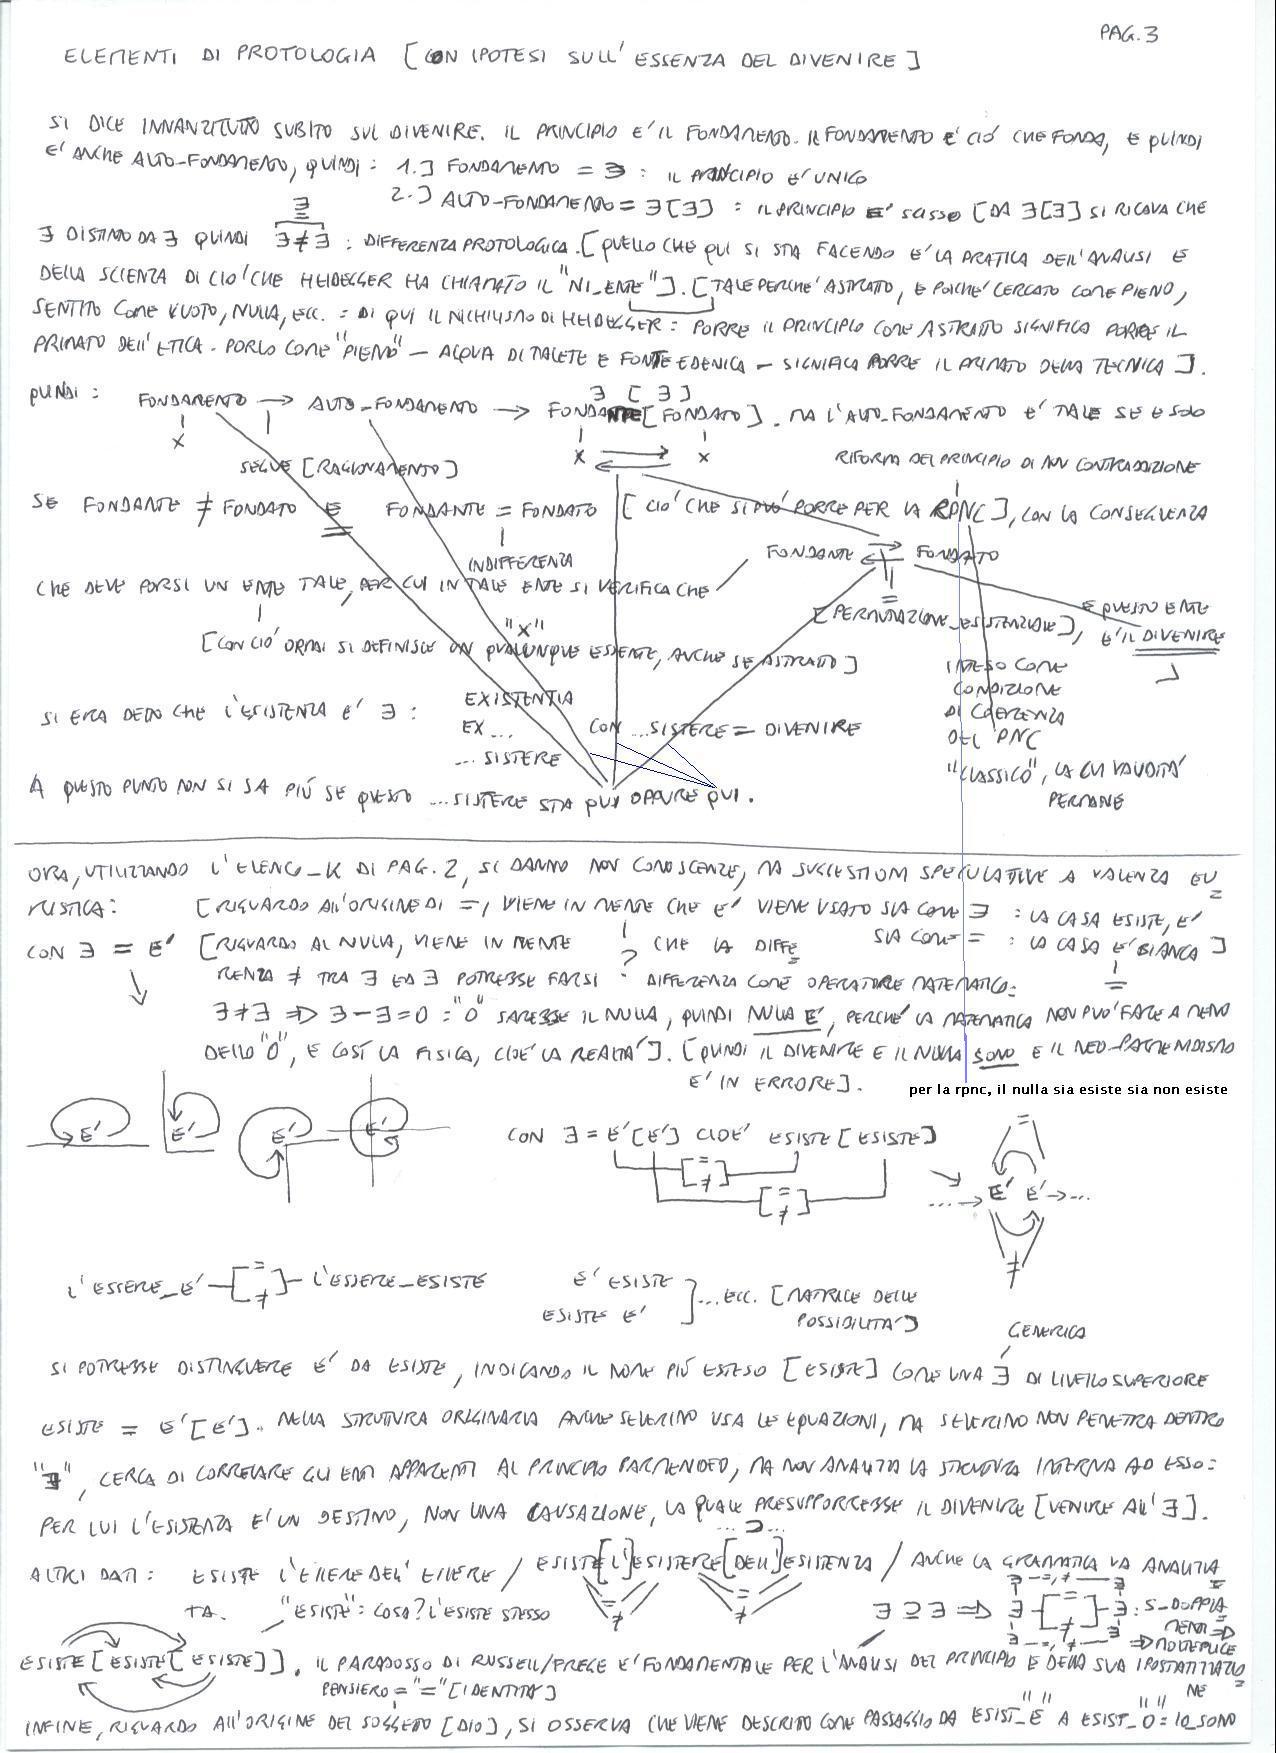 PAG. 3
ELEMENTI DI PROTOLOGIA [CON IPOTESI SULL'ESSENZA DEL DIVENIRE]
SI DICE INNANZITUTTO SUBITO SUL DIVENIRE. IL PRINCIPIO E' IL FONDAMENTO. IL FONDAMENTO E' CIO' CHE FONDA, E QUINDI
E' ANCHE AUTO-FONDAMENTO, QUINDI: 1.] FONDAMENTO = ∃ : IL PRINCIPIO E' UNICO
2.] AUTO-FONDAMENTO = ∃[∃] : IL PRINCIPIO E' SCISSO [DA ∃[∃] SI RICAVA CHE
∃
∃ DISTINTO DA ∃ QUINDI ∃≠∃ : DIFFERENZA PROTOLOGICA. [QUELLO CHE QUI SI STA FACENDO E' LA PRATICA DELL'ANALISI E
DELLA SCIENZA DI CIO' CHE HEIDEGGER HA CHIAMATO IL "NI_ENTE"]. [TALE PERCHE' ASTRATTO, E POICHE' CERCATO COME PIENO,
SENTITO COME VUOTO, NULLA, ECC. : DI QUI IL NICHILISMO DI HEIDEGGER : PORRE IL PRINCIPIO COME ASTRATTO SIGNIFICA PORRE IL
PRIMATO DELL'ETICA. PORLO COME "PIENO" - ACQUA DI TALETE E FONTE EDENICA - SIGNIFICA PORRE IL PRIMATO DELLA TECNICA].
∃ [ ∃ ]
QUINDI : FONDAMENTO → AUTO-FONDAMENTO → FONDANTE [FONDATO]. MA L'AUTO-FONDAMENTO E' TALE SE E SOLO
X X X
SEGUE [RAGIONAMENTO]
RIFORMA DEL PRINCIPIO DI NON CONTRADDIZIONE
SE FONDANTE ≠ FONDATO E FONDANTE = FONDATO [CIO' CHE SI PUO' PORRE PER LA RPNC], CON LA CONSEGUENZA
INDIFFERENZA
FONDANTE ⇄ FONDATO
CHE DEVE PORSI UN ENTE TALE, PER CUI IN TALE ENTE SI VERIFICA CHE
=
[PERMUTAZIONE_ESISTENZIALE], E QUESTO ENTE
E' IL DIVENIRE
"X"
[CON CIO' ORMAI SI DEFINISCE UN QUALUNQUE ESSENTE, ANCHE SE ASTRATTO]
INTESO COME
CONDIZIONE
DI COERENZA
DEL PNC
"CLASSICO", LA CUI VALIDITA'
PERMANE
SI ERA DETTO CHE L'ESISTENZA E' ∃ : EXISTENTIA
EX ... CON ...SISTERE = DIVENIRE
... SISTERE
A QUESTO PUNTO NON SI SA PIÚ SE QUESTO ...SISTERE STA QUI OPPURE QUI.
ORA, UTILIZZANDO L'ELENCO_K DI PAG. 2, SI DANNO NON CONOSCENZE, MA SUGGESTIONI SPECULATIVE A VALENZA EU
RISTICA: [RIGUARDO ALL'ORIGINE DI =, VIENE IN MENTE CHE E' VIENE USATO SIA COME ∃ : LA CASA ESISTE, E'
SIA COME = : LA CASA E' BIANCA]
=
CON ∃ = E' [RIGUARDO AL NULLA, VIENE IN MENTE CHE LA DIFFE
?
RENZA ≠ TRA ∃ ED ∃ POTREBBE FARSI : DIFFERENZA COME OPERATORE MATEMATICO:
∃≠∃ ⇒ ∃-∃=0 : "0" SAREBBE IL NULLA, QUINDI NULLA E', PERCHE' LA MATEMATICA NON PUO' FARE A MENO
DELLO "0", E COSÍ LA FISICA, CIOE' LA REALTA']. [QUINDI IL DIVENIRE E IL NULLA SONO E IL NEO-PARMENIDISMO
E' IN ERRORE].
per la rpnc, il nulla sia esiste sia non esiste
E' E' E' E'
CON ∃ = E'[E'] CIOE' ESISTE [ESISTE]
[=≠]
[=≠]
=
...→ E' E' →...
≠
L'ESSERE_E' [=≠] L'ESSERE_ESISTE
E' ESISTE
ESISTE E' ]...ECC. [MATRICE DELLE
POSSIBILITA']
GENERICA
SI POTREBBE DISTINGUERE E' DA ESISTE, INDICANDO IL NOME PIÚ ESTESO [ESISTE] COME UNA ∃ DI LIVELLO SUPERIORE
ESISTE = E'[E']. NELLA STRUTTURA ORIGINARIA ANCHE SEVERINO USA LE EQUAZIONI, MA SEVERINO NON PENETRA DENTRO
"∃", CERCA DI CORRELARE GLI ENTI APPARENTI AL PRINCIPIO PARMENIDEO, MA NON ANALIZZA LA STRUTTURA INTERNA AD ESSO:
PER LUI L'ESISTENZA E' UN DESTINO, NON UNA CAUSAZIONE, LA QUALE PRESUPPORREBBE IL DIVENIRE [VENIRE ALL'∃].
... ⊃ ...
ALTRI DATI : ESISTE L'ESSERE DELL'ESSERE / ESISTE[L']ESISTERE[DELL']ESISTENZA / ANCHE LA GRAMMATICA VA ANALIZZA
TA. "ESISTE": COSA? L'ESISTE STESSO
= ≠ = ≠
∃ ⊇ ∃ ⇒ ∃ [=≠] ∃ : S_DOPPIA
MENTI ⇒
⇒ MOLTEPLICE
ESISTE [ESISTE [ESISTE]]. IL PARADOSSO DI RUSSELL/FREGE E' FONDAMENTALE PER L'ANALISI DEL PRINCIPIO E DELLA SUA IPOSTATIZZAZIO
NE
PENSIERO = "=" [IDENTITA']
INFINE, RIGUARDO ALL'ORIGINE DEL SOGGETTO [DIO], SI OSSERVA CHE VIENE DESCRITTO COME PASSAGGIO DA ESIST_"E" A ESIST_"O" = IO_SONO